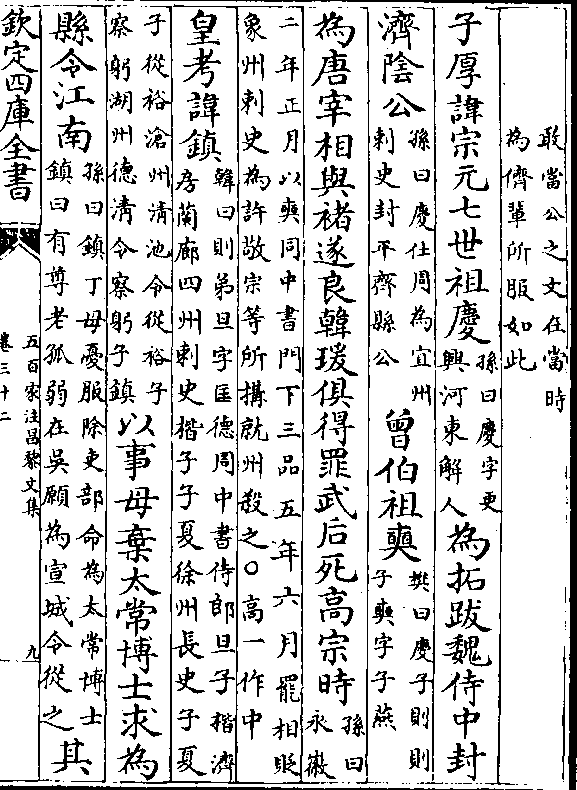 敢當公之文在當時
為儕輩所服如此
子厚諱宗元七世祖慶
孫曰慶字更
興河東解人
為拓跋魏侍中封
濟陰公
孫曰慶仕周為宜州
刺史封平齊縣公
曾伯祖奭
樊曰慶子則則
子奭字子燕
為唐宰相與褚遂良韓瑗俱得罪武后死高宗時
孫曰
永徽
二年正月以奭同中書門下三品五年六月罷相貶
象州刺史為許敬宗等所構就州殺之○高一作中
皇考諱鎮
韓曰則弟旦字匡德周中書侍郎旦子楷濟
房蘭廊四州刺史楷子子夏徐州長史子夏
子從裕滄州清池令從裕子
察躬湖州德清令察躬子鎮
以事母棄太常博士求為
縣令江南
孫曰鎮丁母憂服除吏部命為太常博士
鎮曰有尊老孤弱在吳願為宣城令從之
其
欽定四庫全書
五百家注昌黎文集
卷三十二
九